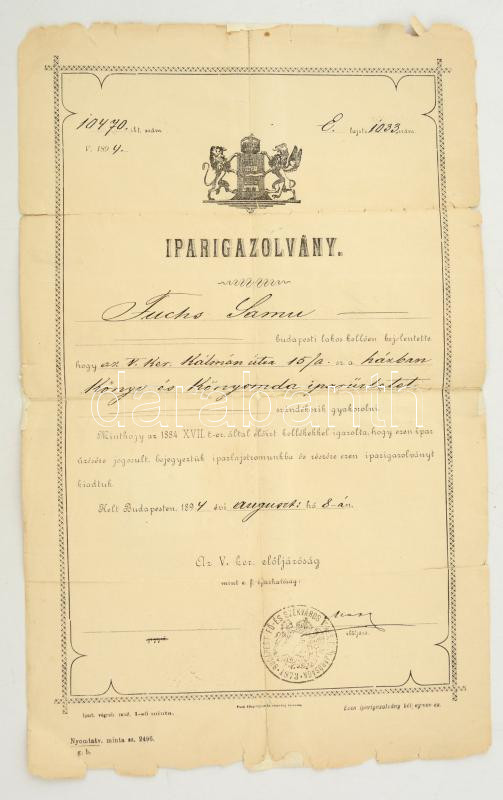 10470. ikt. szám.
E. lajstr. 1033. szám.
V. 1894.
IPARIGAZOLVÁNY.
Fuchs Samu
budapesti lakos kellően bejelentette
hogy az V. Ker. Kálmán útca 15/a. sz. a. házban
Könyv és Kőnyomda iparüzletet
szándékszik gyakorolni.
Minthogy az 1884 XVII. t-cz. által előirt kellékekkel igazolta, hogy ezen ipar
űzésére jogosult, bejegyeztük iparlajstromunkba és részére ezen iparigazolványt
kiadtuk.
Kelt Budapesten, 1894 évi august: hó 8-án.
Az V. ker. előljáróság
mint e. f. iparhatóság:
előljáró.
1873
Ipart. végreh. rend. 1-ső minta.
Ezen iparigazolvány bélyegmentes.
Nyomtatv. minta sz. 2496.
g. b.
darabanth